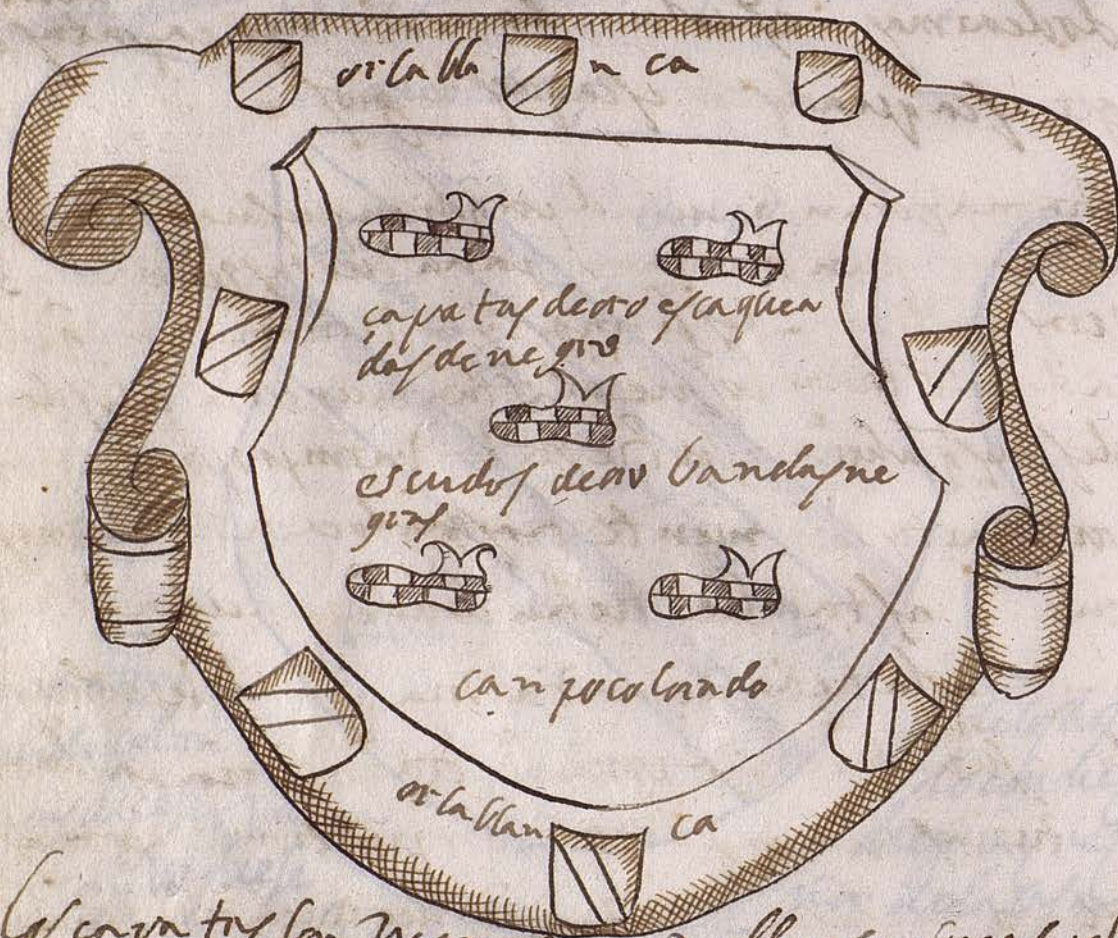 orla bla n ca
çapatas de oro escaquea
das de negro
escudos de oro bandas ne
gras
canpo colorado
orla blan ca